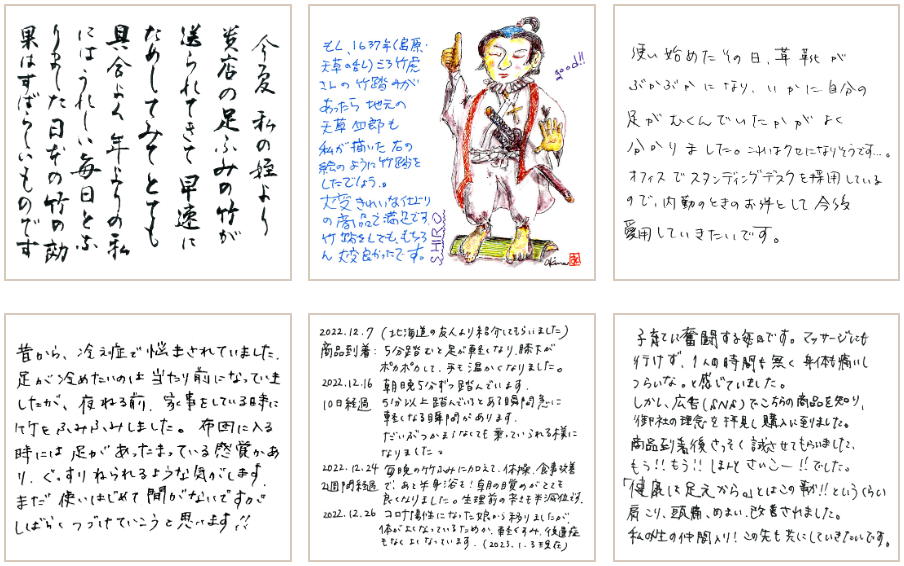 今夏 私の姪より
貨店の足ふみの竹が
送られてきて早速に
ためしてみてとても
具合よく年よりの私
にはうれしい毎日とふ
りました 日本の竹の効
果はすばらしいものです
もし、1637年(島原・
天草の乱)ころ竹虎
さんの竹踏みが
あったら 地元の
天草四郎も
私が描いた右の
絵のように竹踏を
したでしょう。
大変きれいな仕上り
の商品で満足です
竹踏をしても、もちろ
ん大変良かったです。
good!!
SHIRO
使い始めたその日、革靴が
ぶかぶかになり、いかに自分の
足がむくんでいたかがよく
分かりました。これはクセになりそうです…。
オフィスでスタンディングデスクを採用している
ので、内勤のときのお伴として今後
愛用していきたいです。
昔から、冷え症で悩まされていました。
足が冷めたいのは当たり前になっていま
したが、夜ねる前、家事をしている時に
竹をふみふみしました。布団に入る
時には足があったまっている感覚があ
り、ぐっすりねられるような気がします
まだ使いはじめて間がないですが
しばらくつづけていこうと思います!!
2022.12.7 (北海道の友人より紹介してもらいました)
商品到着: 5分踏むと足が軽くなり、膝下が
ポカポカして、手も温かくなりました。
2022.12.16 朝晩5分ずつ踏んでいます。
10日経過 5分以上踏んでいるとある瞬間急に
軽くなる瞬間があります。
だいぶつかまらなくても乗っていられる様に
なりました。
2022.12.24 毎晩の竹ふみに加えて、体操、食事改善
2週間経過 で、あと半身浴を!朝の目覚めがとても
良くなりました。生理前の辛さも半減位。
2022.12.26 コロナ陽性になった娘から移りましたが、
体がよくなっているためか、軽くすみ、後遺症
もなくよくなっています。(2023.1.3現在)
子育てに奮闘する毎日です。マッサージにも
行けず、1人の時間も無く身体も痛いし
つらいな。と感じていました。
しかし、広告(SNS)でこちらの商品を知り、
御社の理念を拝見し購入に到りました。
商品到着後さっそく試させてもらいました、
もう!!もう!!ほんとさいこー!!でした。
「健康は足元から。」とはこの事!!というくらい
肩こり、頭痛、めまい、改善されました。
私の生の仲間入り!この先も共にしていきたいです。